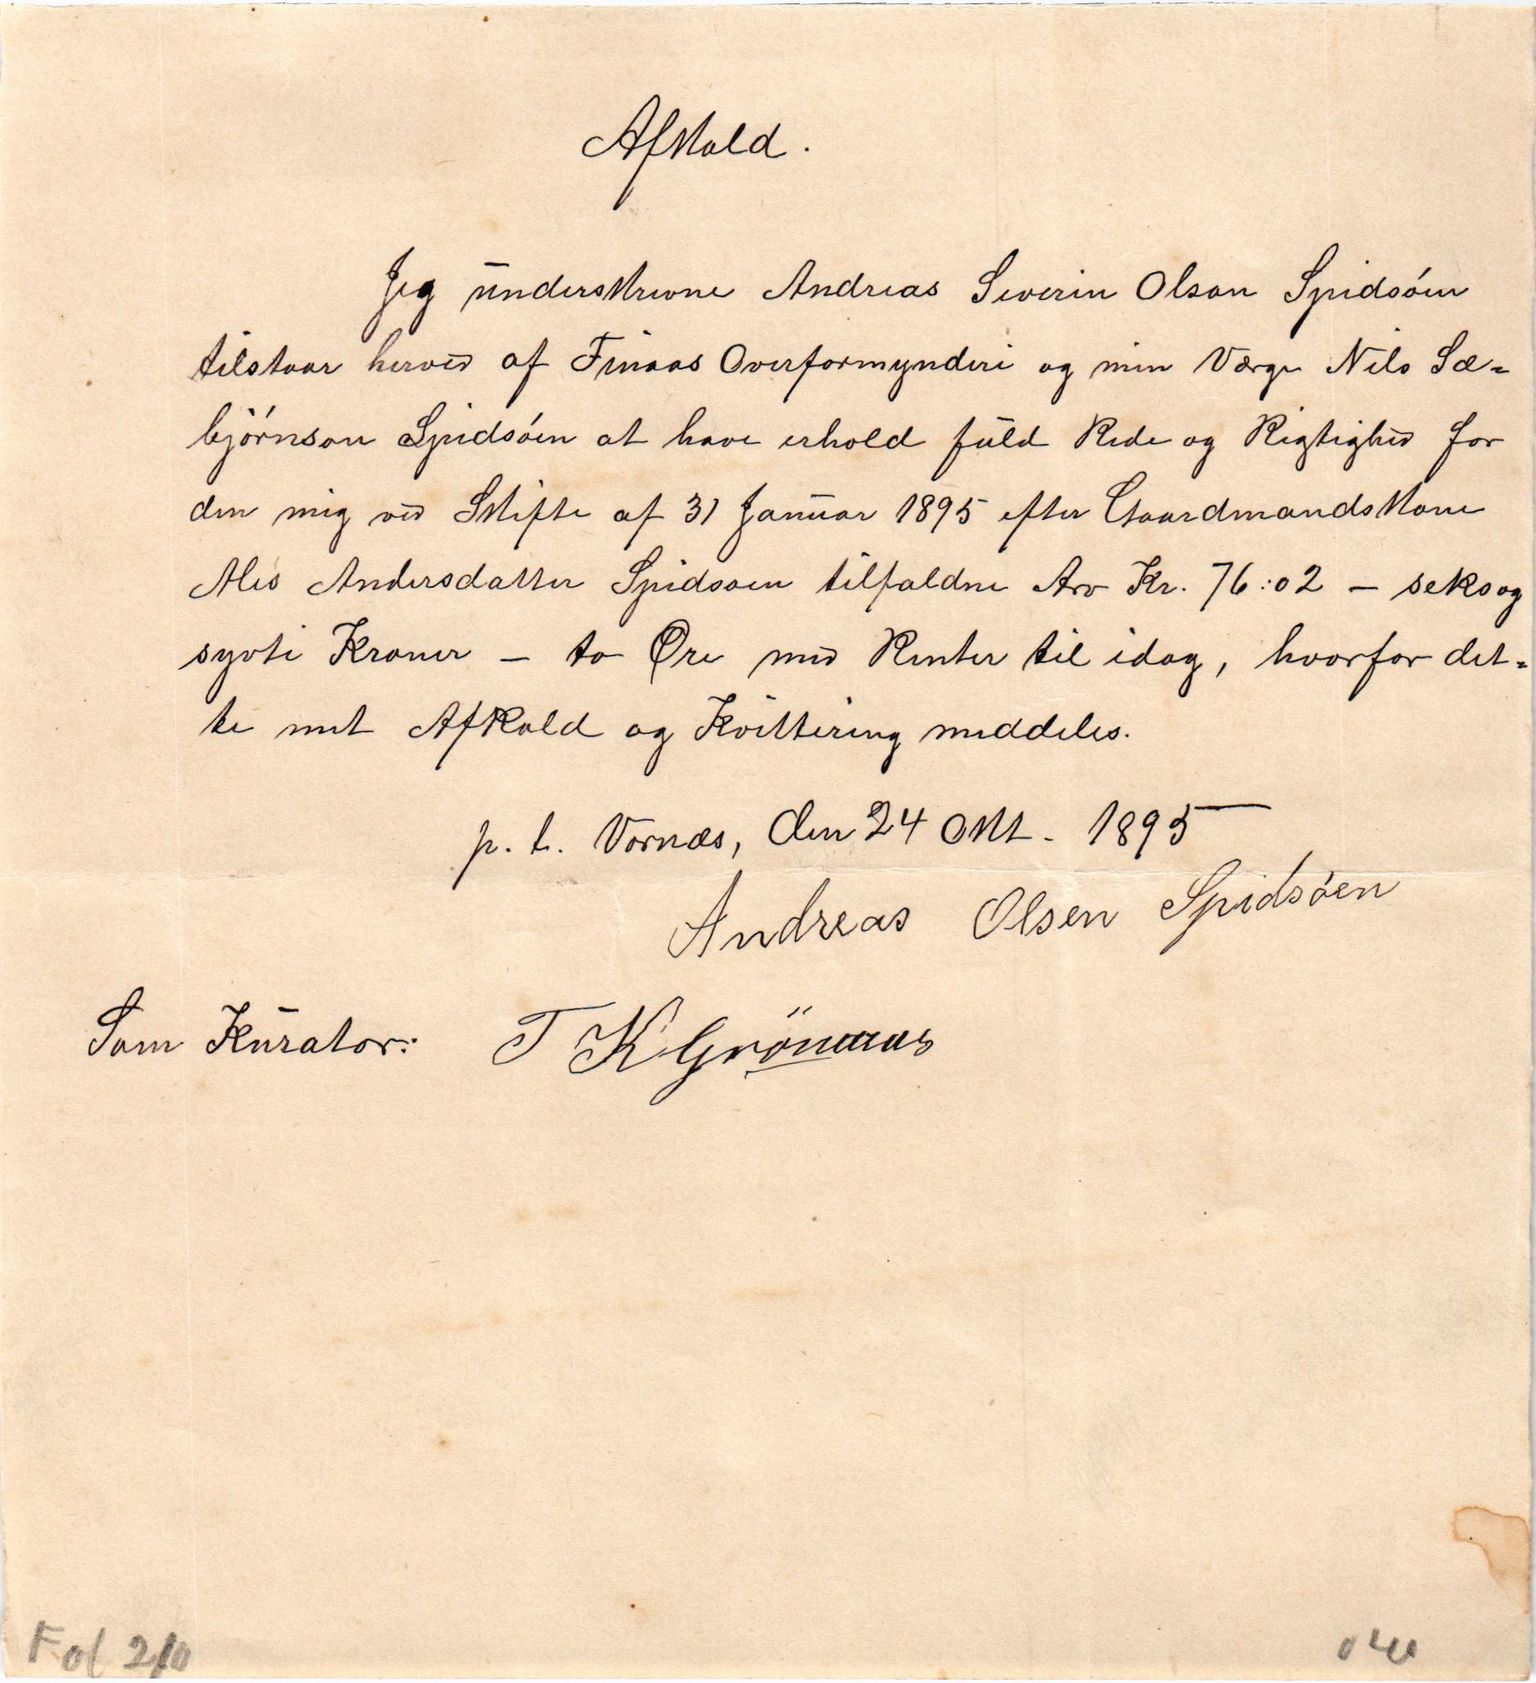 Afkald.
Jeg underskrevne Andreas Severin Olson Spidsöen
tilstaar herved af Finaas Overformynderi og min Værge Nils Sæ=
björnson Spidsöen at have erhold fuld Rede og Rigtighed for
den mig ved Skifte af 31 Januar 1895 efter Gaardmandskone
Ales Andersdatter Spidsoen tilfaldne Arv Kr. 76:02 – seksog
syvti Kroner – to Øre med Renter til idag, hvorfor det=
te mit Afkald og Kvittering meddeles.
p. t. Vornæs, den 24 Okt. 1895
Andreas Olsen Spidsöen
Som Kurator: T K Grönaas
Fol 210